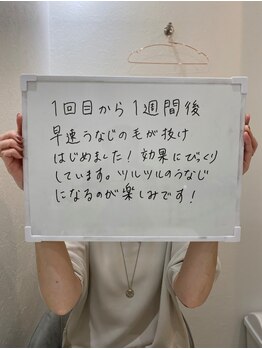 1回目から1週間後
早速うなじの毛が抜け
はじめました！効果にびっくり
しています。ツルツルのうなじ
になるのが楽しみです！